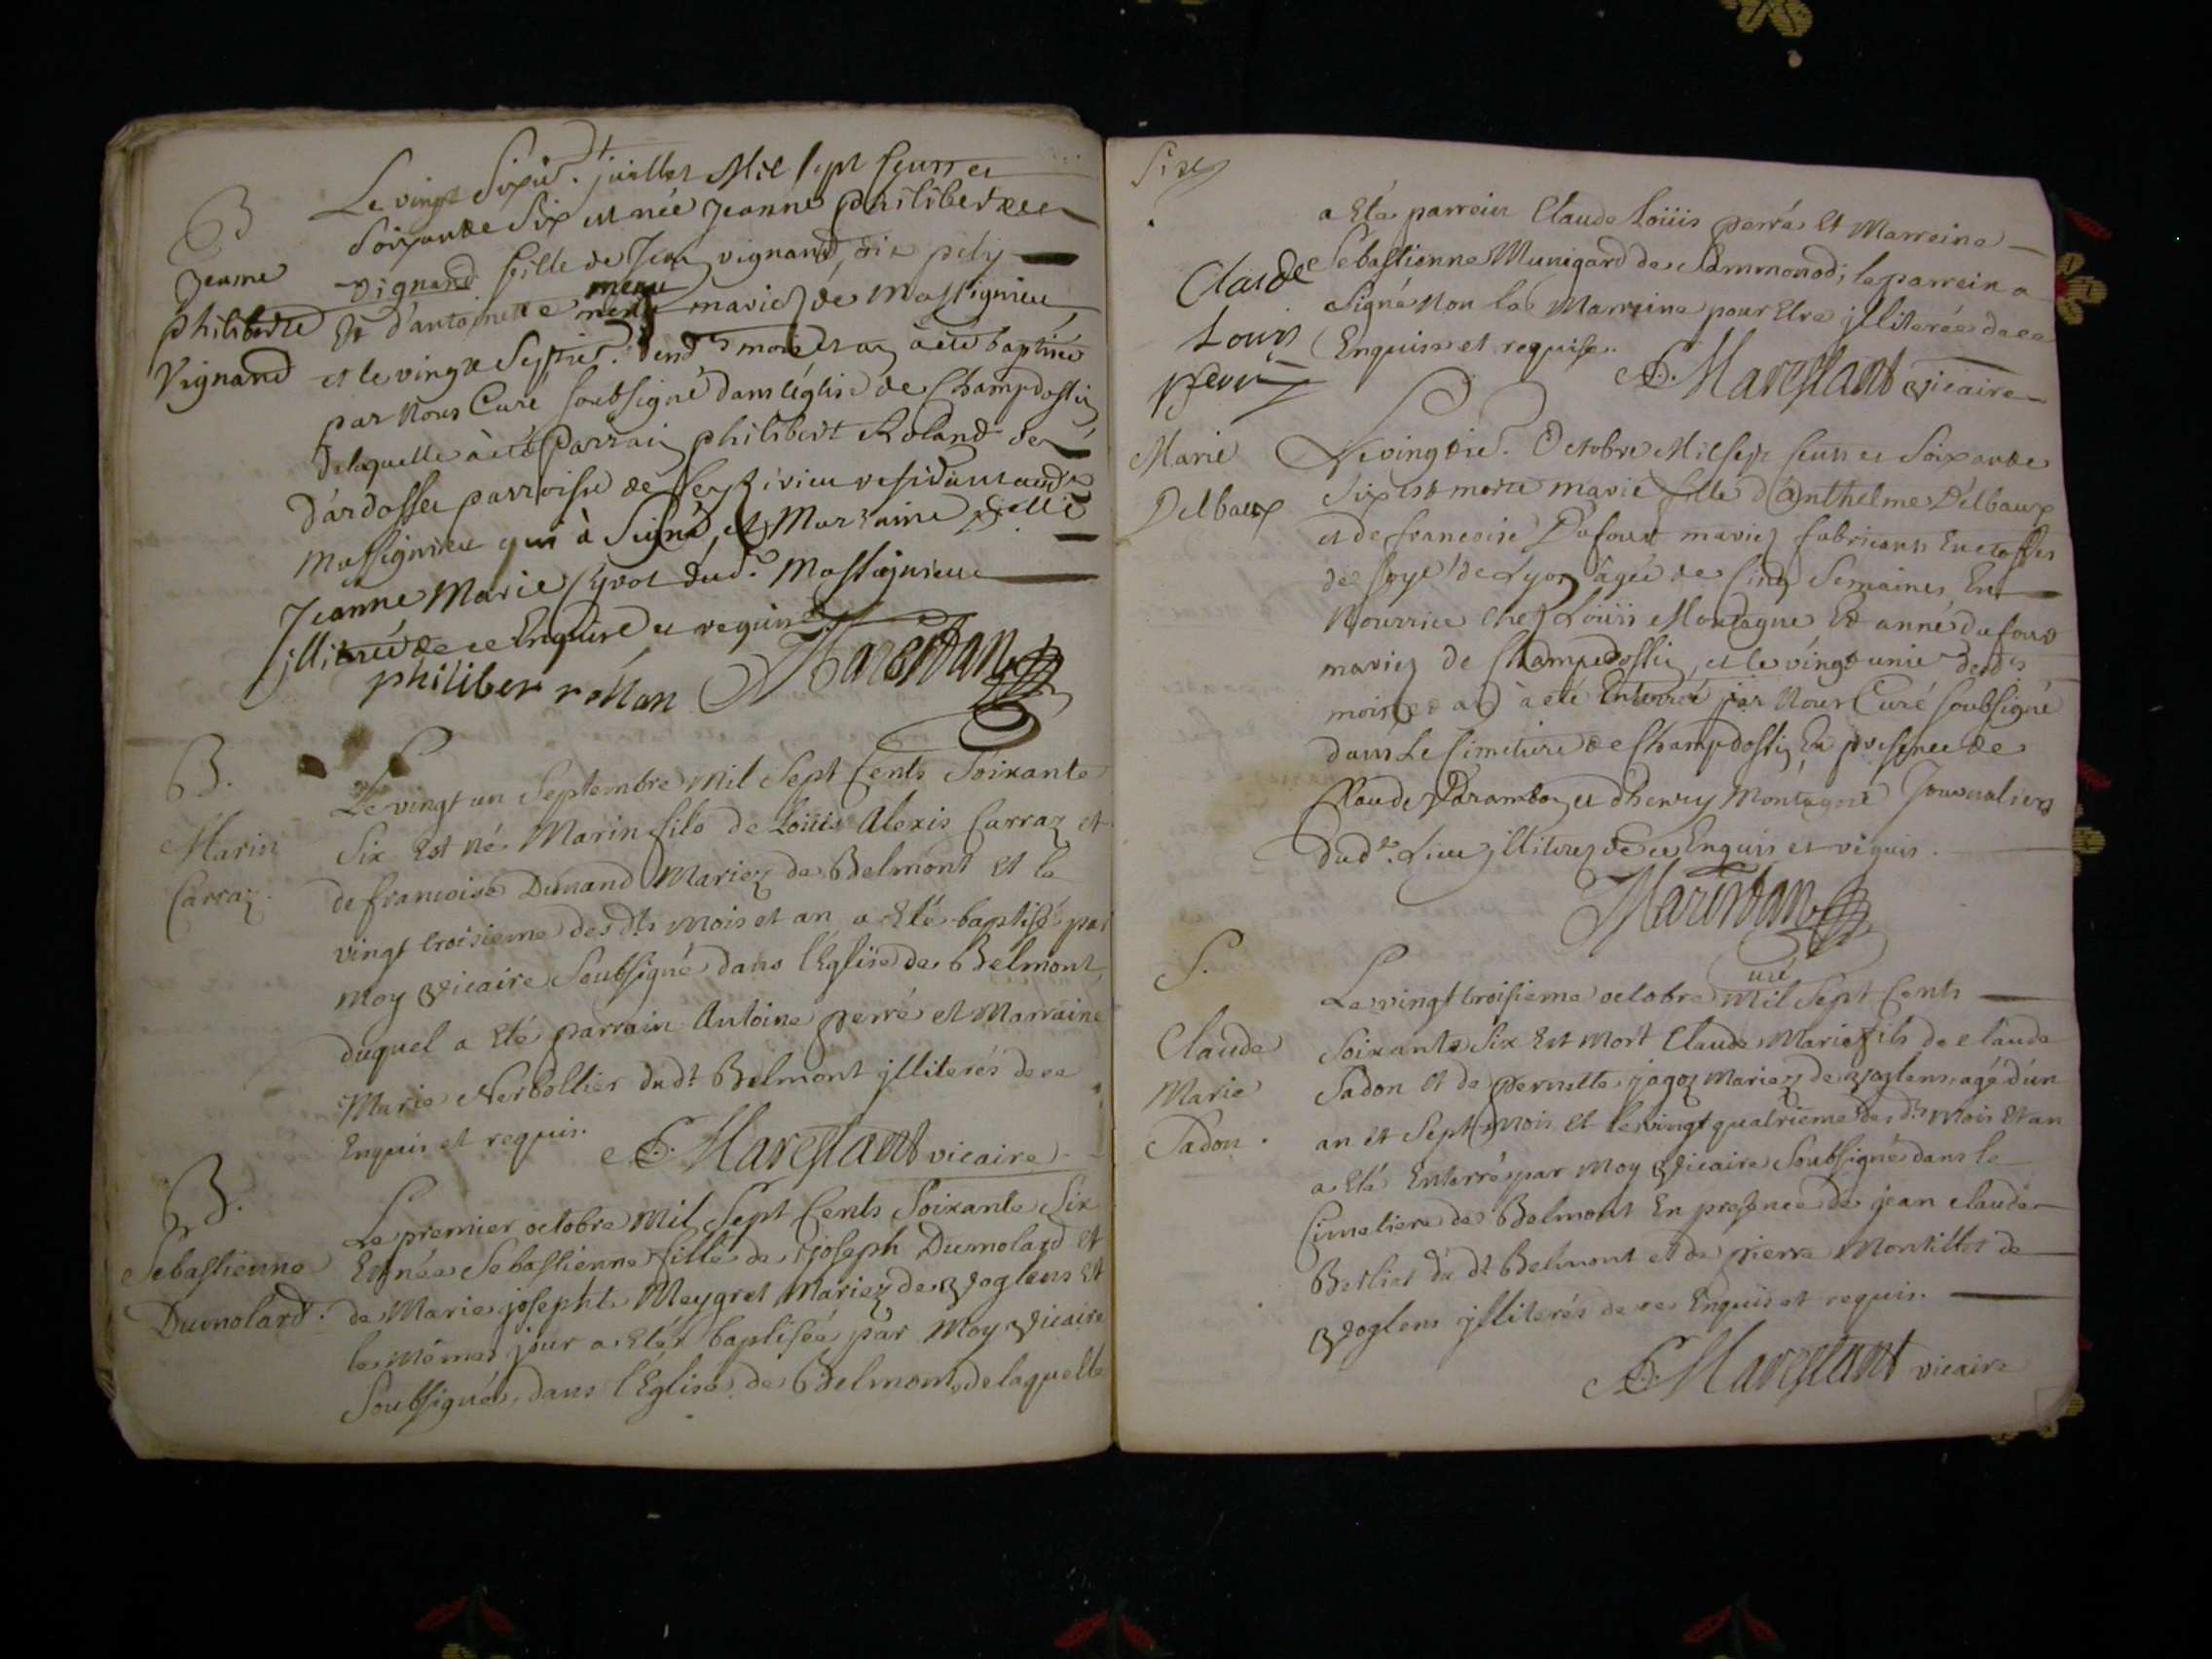 B
Jeanne
philiberte
Vignand
Le vingt Sixie. juillet Mil sept Cents et
Soixante Six est née Jeanne philiberte
vignand fille de Jean vignand, dit
Et d'antoinette mariez de Massignieu
et le vingt Septie. dend. mois et an à été baptisée
par Nous Curé soubsigné dans léglise de Champdossin
de laquelle à été Parrain philibert Roland de
d'ardosset parroisse de residant aud.
Massignieu qui à Signé, et Marraine
Jeanne Marie dud. Massignieu
illiterée de ce Enquise et requise
philiber rollan Marestan
B.
Marin
Carraz.
Le vingt un Septembre Mil Sept Cents Soixante
Six Est né Marin fils de Loüis Alexis Carraz et
de francoise Dunand Mariez de Belmont Et le
vingt troisieme desdts Mois et an a Eté baptisé par
Moy Vicaire Soubsigné dans l'Eglise de Belmont,
duquel a Eté parrain Antoine perré et Marraine
Marie Nerbollier dudt Belmont illiterés de ce
Enquis et requis.
Marestant vicaire
B.
Sebastienne
Dumolard.
Le premier octobre Mil Sept Cents Soixante Six
Est née Sebastienne fille de joseph Dumolard et
de Marie josephte Meygret Mariez de Voglens Et
le même jour a Eté baptisée par Moy Vicaire
Soubsigné, dans l'Eglise de Belmont, de laquelle
Six
a Eté parrein Claude Loüis perré Et Marreine
Sebastienne Munigard de Sammonod; le parrein a
Signé Non la Marreine pour Etre illiterée de ce
Enquise et requise.
Claude
Louis
perré
Marestant Vicaire
Marie
Delbaux
Le vingtie. Octobre Mil sept Cents et Soixante
Six est morte marie fille d'anthelme Delbaux
et de francoise Dufour mariez fabricants En etoffes
de soye de Lyon âgée de Cinq Semaines, En
Nourrice Chez Loüis Montagne Et anne dufour
mariez de Champdossin, et le vingt unie desds
mois et an à été Enterrée par Nous Curé soubsigné
dans Le Cimetiere de Champdossin En presence de
Claude et d'henry Montagne Journaliers
dud. Lieu illiterez de ce Enquis et requis.
Marestan
curé
S.
Claude
Marie
Sadon.
Le vingt troisieme octobre Mil Sept Cents
Soixante Six Est Mort Claude Marie fils de Claude
Sadon et de pernette jagoz Mariez de Voglens, agé d'un
an et Sept Mois et le vingt quatrieme desdts Mois Et an
a Eté Enterré par Moy Vicaire Soubsigné dans le
Cimetiere de Belmont En presence de jean claude
Berliet dudt Belmont et de pierre Montillet de
Voglens illiterés de ce Enquis et requis.
Marestant vicaire